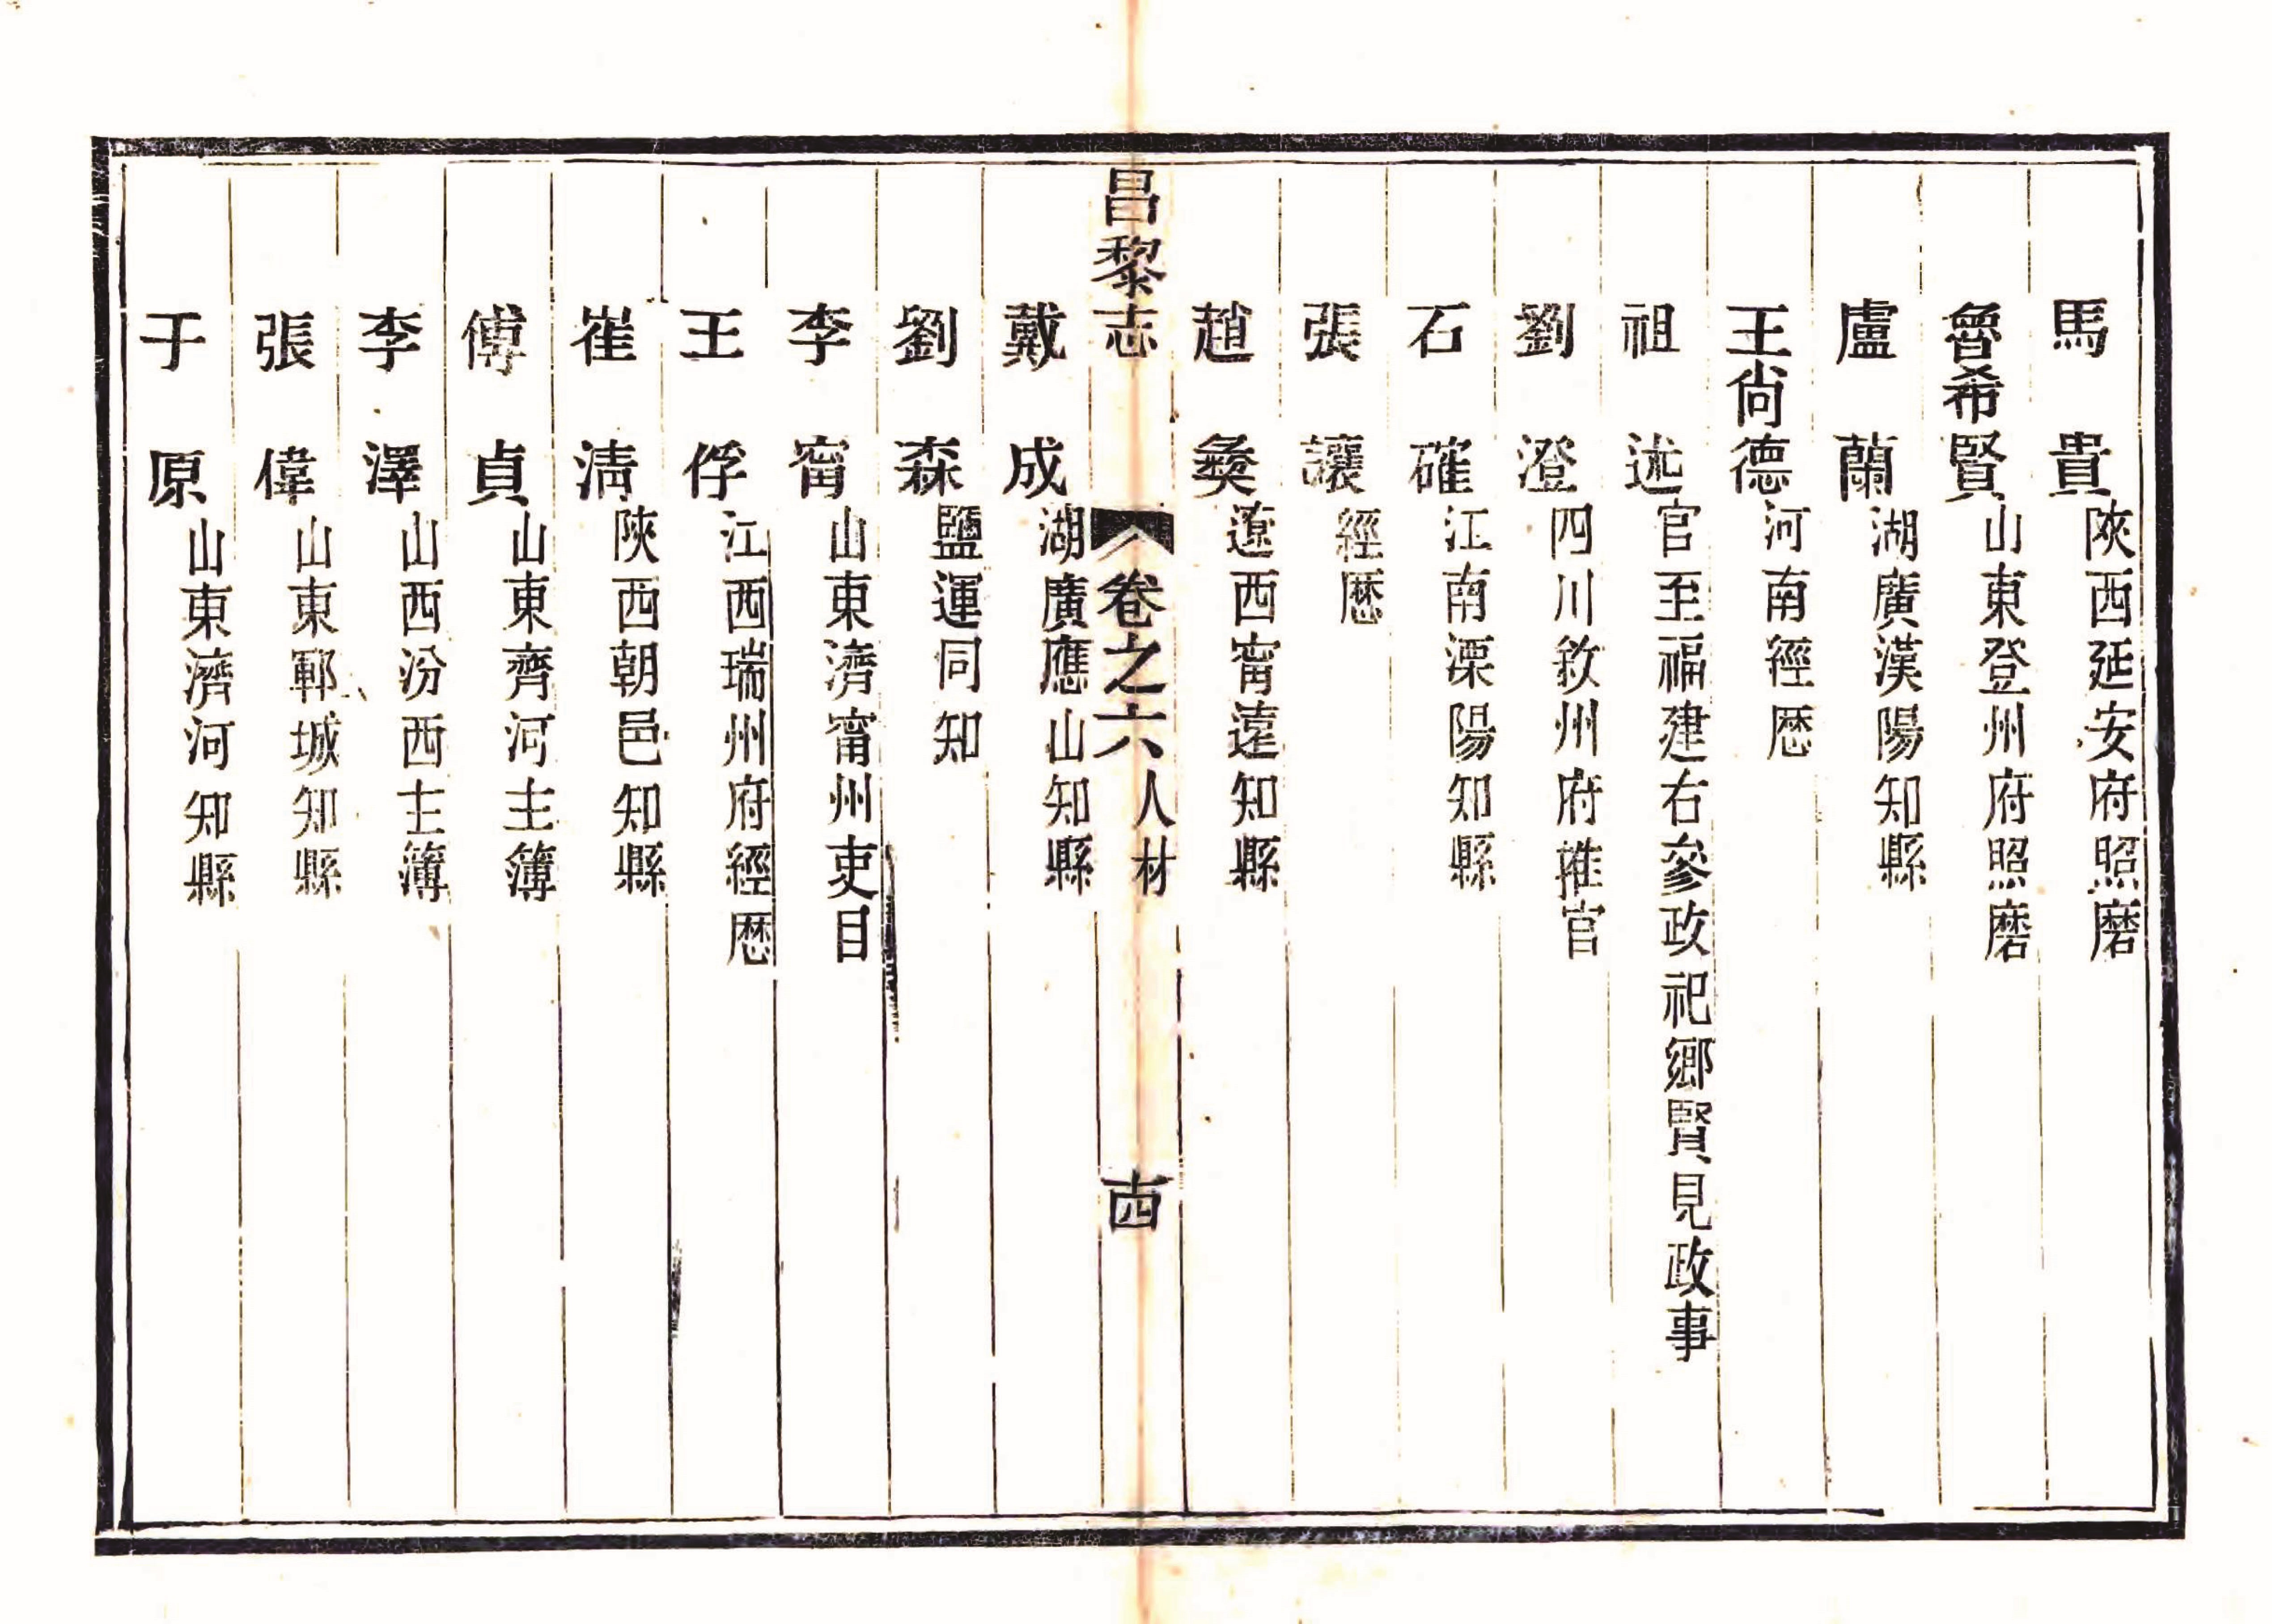 馬貴陝西延安府照磨
魯希賢山東登州府照磨
盧蘭湖廣漢陽知縣
王尚德河南經厯
祖述官至福建右參政祀鄉賢見政事
劉澄四川敘州府推官
石確江南溧陽知縣
張讓經厯
趙彜遼西甯遠知縣
昌黎志 卷之六 人材 十四
戴成湖廣應山知縣
劉森鹽運同知
李甯山東濟甯州吏目
王俘江西瑞州府經厯
崔淸陝西朝邑知縣
傅貞山東齊河主簿
李澤山西汾西主簿
張偉山東鄆城知縣
于原山東濟河知縣